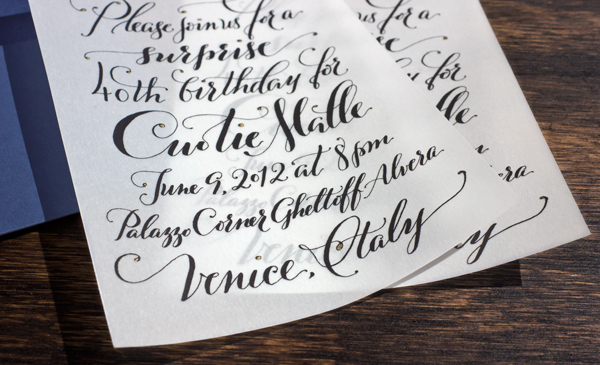 Please join us for a
surprise
40th birthday for
Malle
June 9, 2012 at 8pm
Palazzo Corner Gheltoff Alvera
Venice, Italy
for a
for
lle
ra
y